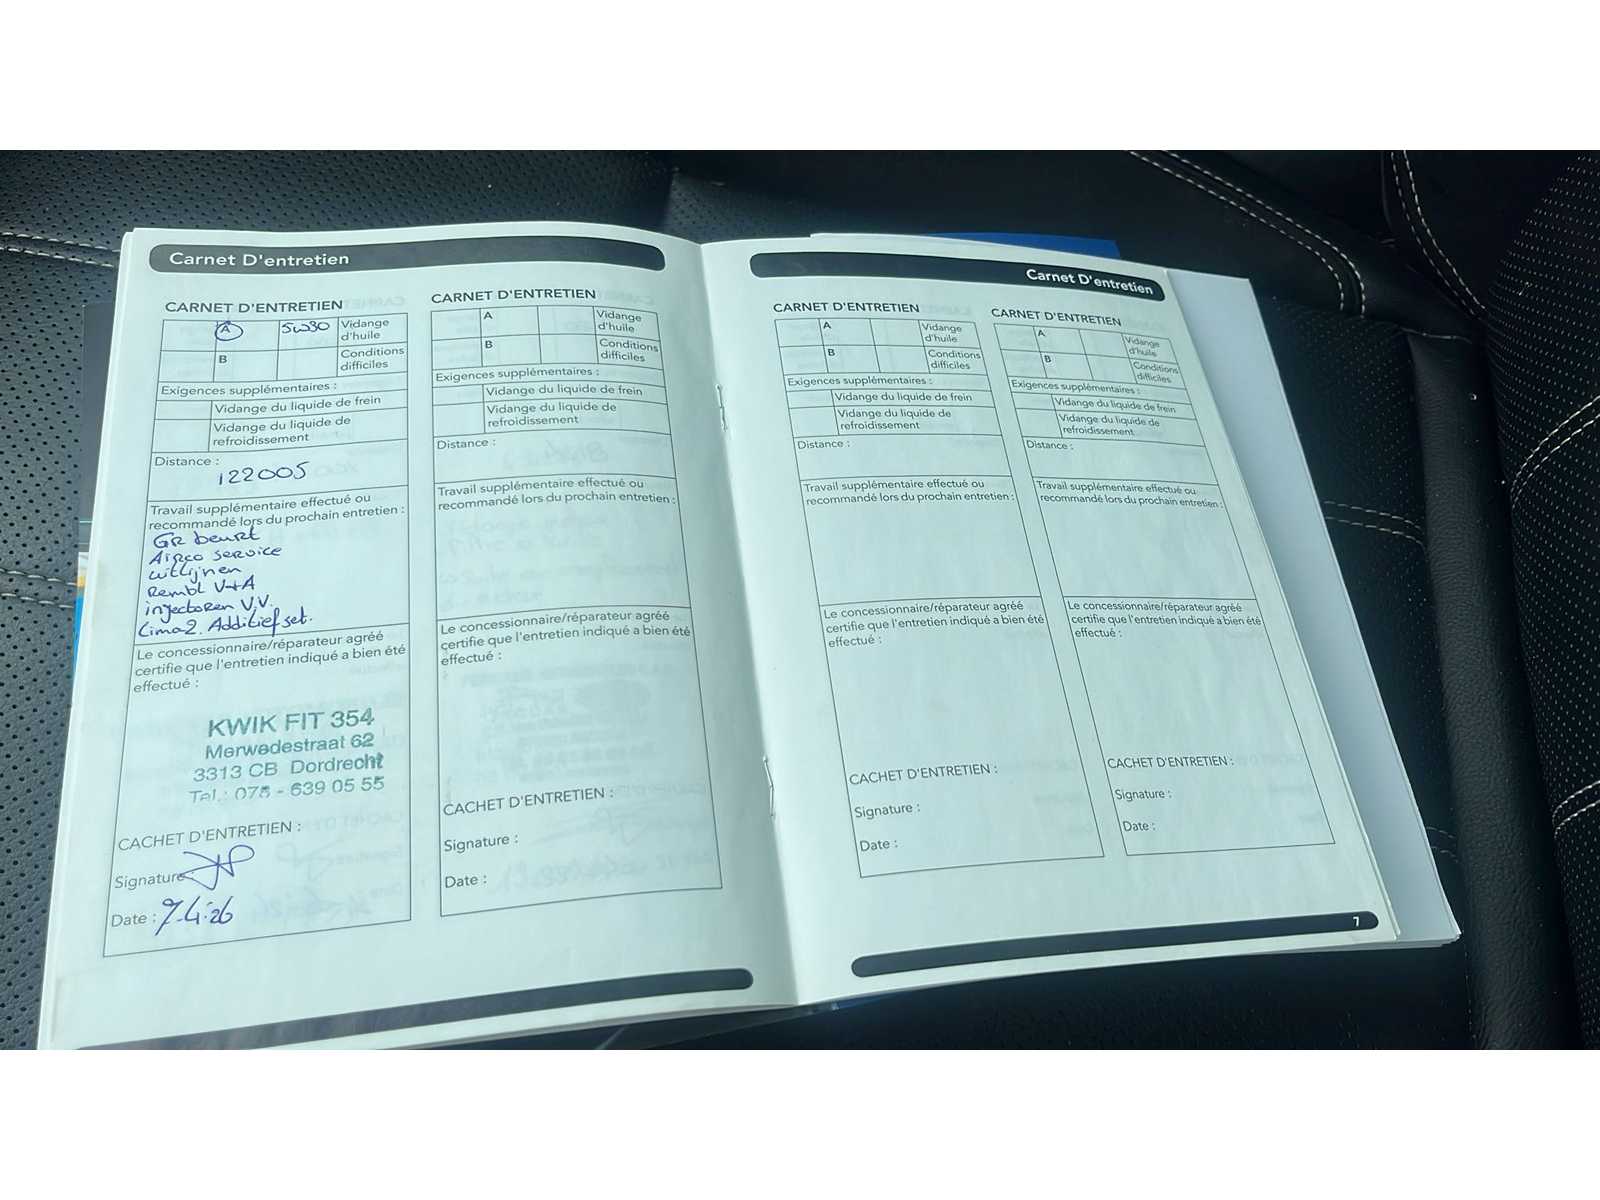 Carnet D'entretien
CARNET D'ENTRETIEN
A 5W30 Vidange d'huile
B Conditions difficiles
Exigences supplémentaires :
Vidange du liquide de frein
Vidange du liquide de
refroidissement
Distance :
122005
Travail supplémentaire effectué ou
recommandé lors du prochain entretien :
GR beurt
Airco service
uitlijnen
Rembl V+A
injectoren V.V.
Additief set.
Le concessionnaire/réparateur agréé
certifie que l'entretien indiqué a bien été
effectué :
KWIK FIT 354
Merwedestraat 62
3313 CB Dordrecht
Tel.: 078 - 639 05 55
CACHET D'ENTRETIEN :
Signature :
Date : 7-4-26
CARNET D'ENTRETIEN
A Vidange d'huile
B Conditions difficiles
Exigences supplémentaires :
Vidange du liquide de frein
Vidange du liquide de
refroidissement
Distance :
Travail supplémentaire effectué ou
recommandé lors du prochain entretien :
Le concessionnaire/réparateur agréé
certifie que l'entretien indiqué a bien été
effectué :
CACHET D'ENTRETIEN :
Signature :
Date :
Carnet D'entretien
CARNET D'ENTRETIEN
A Vidange d'huile
B Conditions difficiles
Exigences supplémentaires :
Vidange du liquide de frein
Vidange du liquide de
refroidissement
Distance :
Travail supplémentaire effectué ou
recommandé lors du prochain entretien :
Le concessionnaire/réparateur agréé
certifie que l'entretien indiqué a bien été
effectué :
CACHET D'ENTRETIEN :
Signature :
Date :
CARNET D'ENTRETIEN
A Vidange d'huile
B Conditions difficiles
Exigences supplémentaires :
Vidange du liquide de frein
Vidange du liquide de
refroidissement
Distance :
Travail supplémentaire effectué ou
recommandé lors du prochain entretien :
Le concessionnaire/réparateur agréé
certifie que l'entretien indiqué a bien été
effectué :
CACHET D'ENTRETIEN :
Signature :
Date :
7